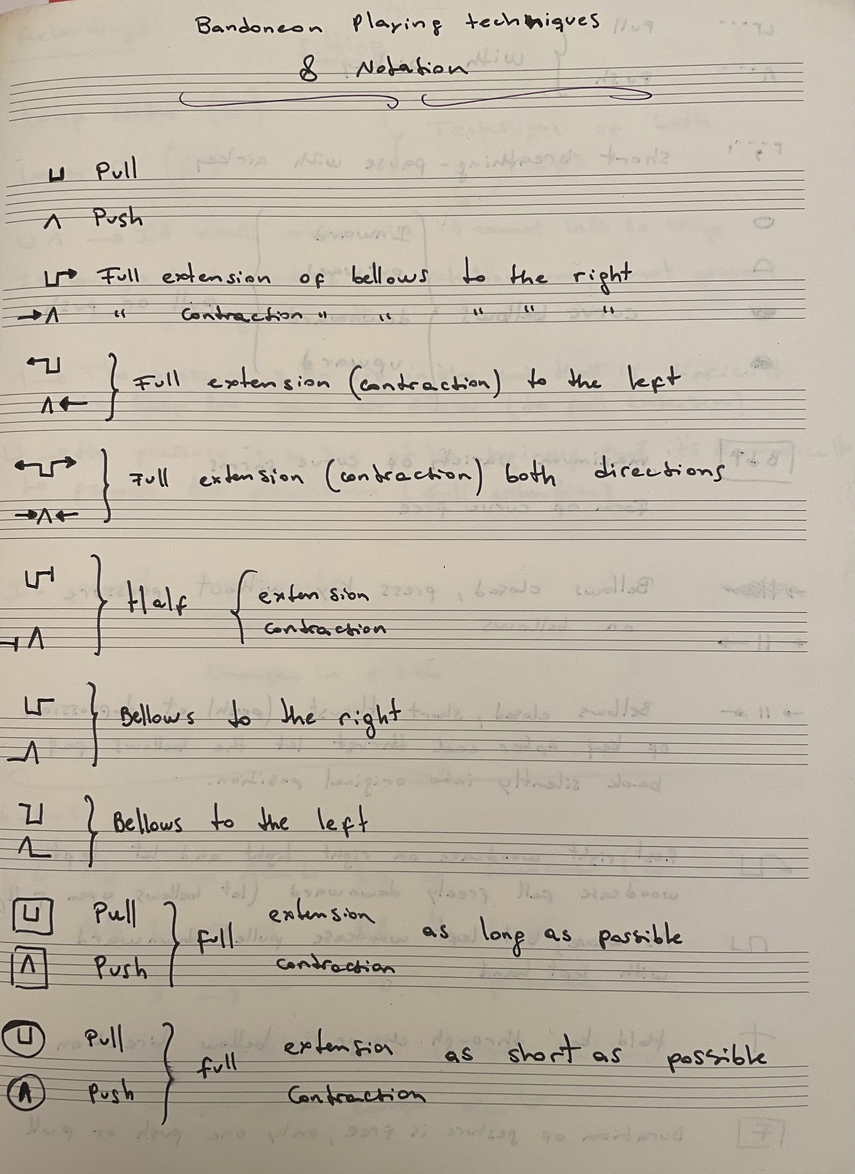 Bandoneon Playing techniques
& Notation
⊔ Pull
∧ Push
Full extension of bellows to the right
→∧ " Contraction " " " " "
Full extension (contraction) to the left
∧←
Full extension (contraction) both directions
→∧←
Half { extension
contraction
Bellows to the right
Bellows to the left
⊔ Pull } full extension as long as possible
∧ Push contraction
⊔ Pull } full extension as short as possible
∧ Push Contraction